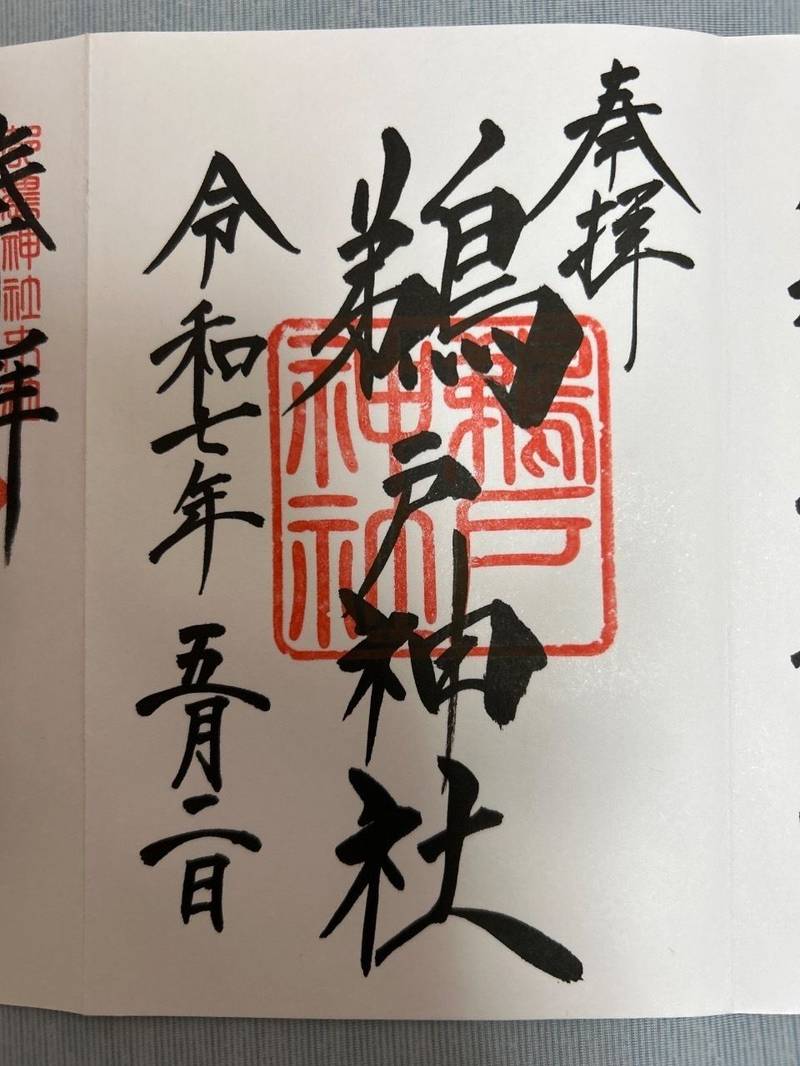 奉拝
鵜戸神社
鵜戸
神社
令和七年 五月二日